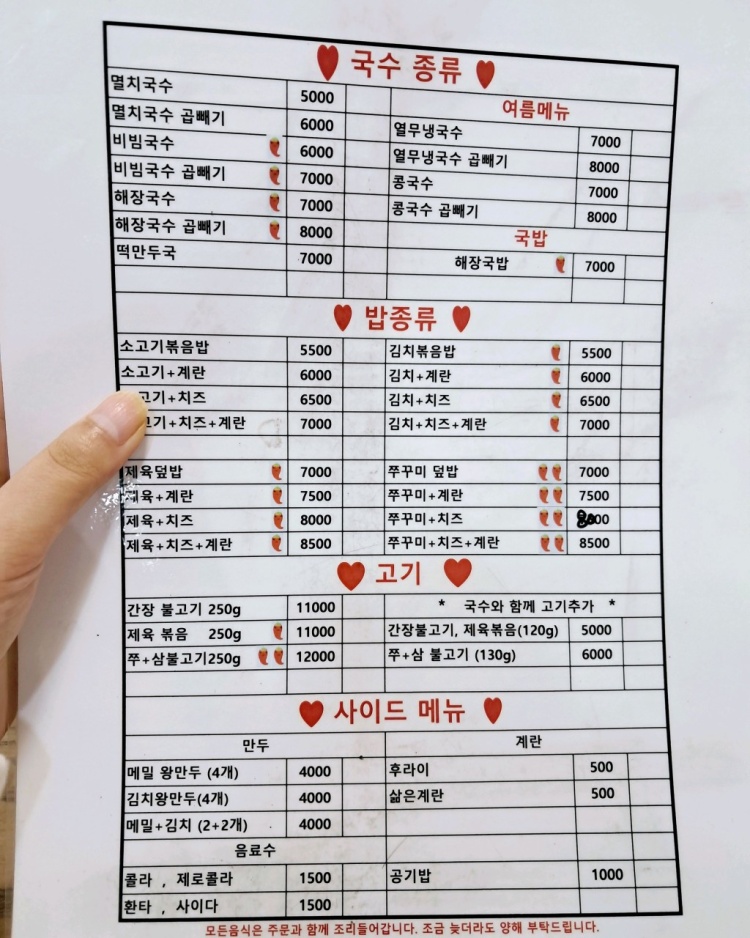 국수 종류
멸치국수 5000
멸치국수 곱빼기 6000
비빔국수 6000
비빔국수 곱빼기 7000
해장국수 7000
해장국수 곱빼기 8000
떡만두국 7000
여름메뉴
열무냉국수 7000
열무냉국수 곱빼기 8000
콩국수 7000
콩국수 곱빼기 8000
국밥
해장국밥 7000
밥종류
소고기볶음밥 5500
소고기+계란 6000
고기+치즈 6500
고기+치즈+계란 7000
김치볶음밥 5500
김치+계란 6000
김치+치즈 6500
김치+치즈+계란 7000
제육덮밥 7000
제육+계란 7500
제육+치즈 8000
제육+치즈+계란 8500
쭈꾸미 덮밥 7000
쭈꾸미+계란 7500
쭈꾸미+치즈
쭈꾸미+치즈+계란 8500
고기
간장 불고기 250g 11000
제육 볶음 250g 11000
쭈+삼불고기250g 12000
* 국수와 함께 고기추가 *
간장불고기, 제육볶음(120g) 5000
쭈+삼 불고기 (130g) 6000
사이드 메뉴
만두
메밀 왕만두 (4개) 4000
김치왕만두(4개) 4000
메밀+김치 (2+2개) 4000
음료수
콜라 , 제로콜라 1500
환타 , 사이다 1500
계란
후라이 500
삶은계란 500
공기밥 1000
모든음식은 주문과 함께 조리들어갑니다. 조금 늦더라도 양해 부탁드립니다.